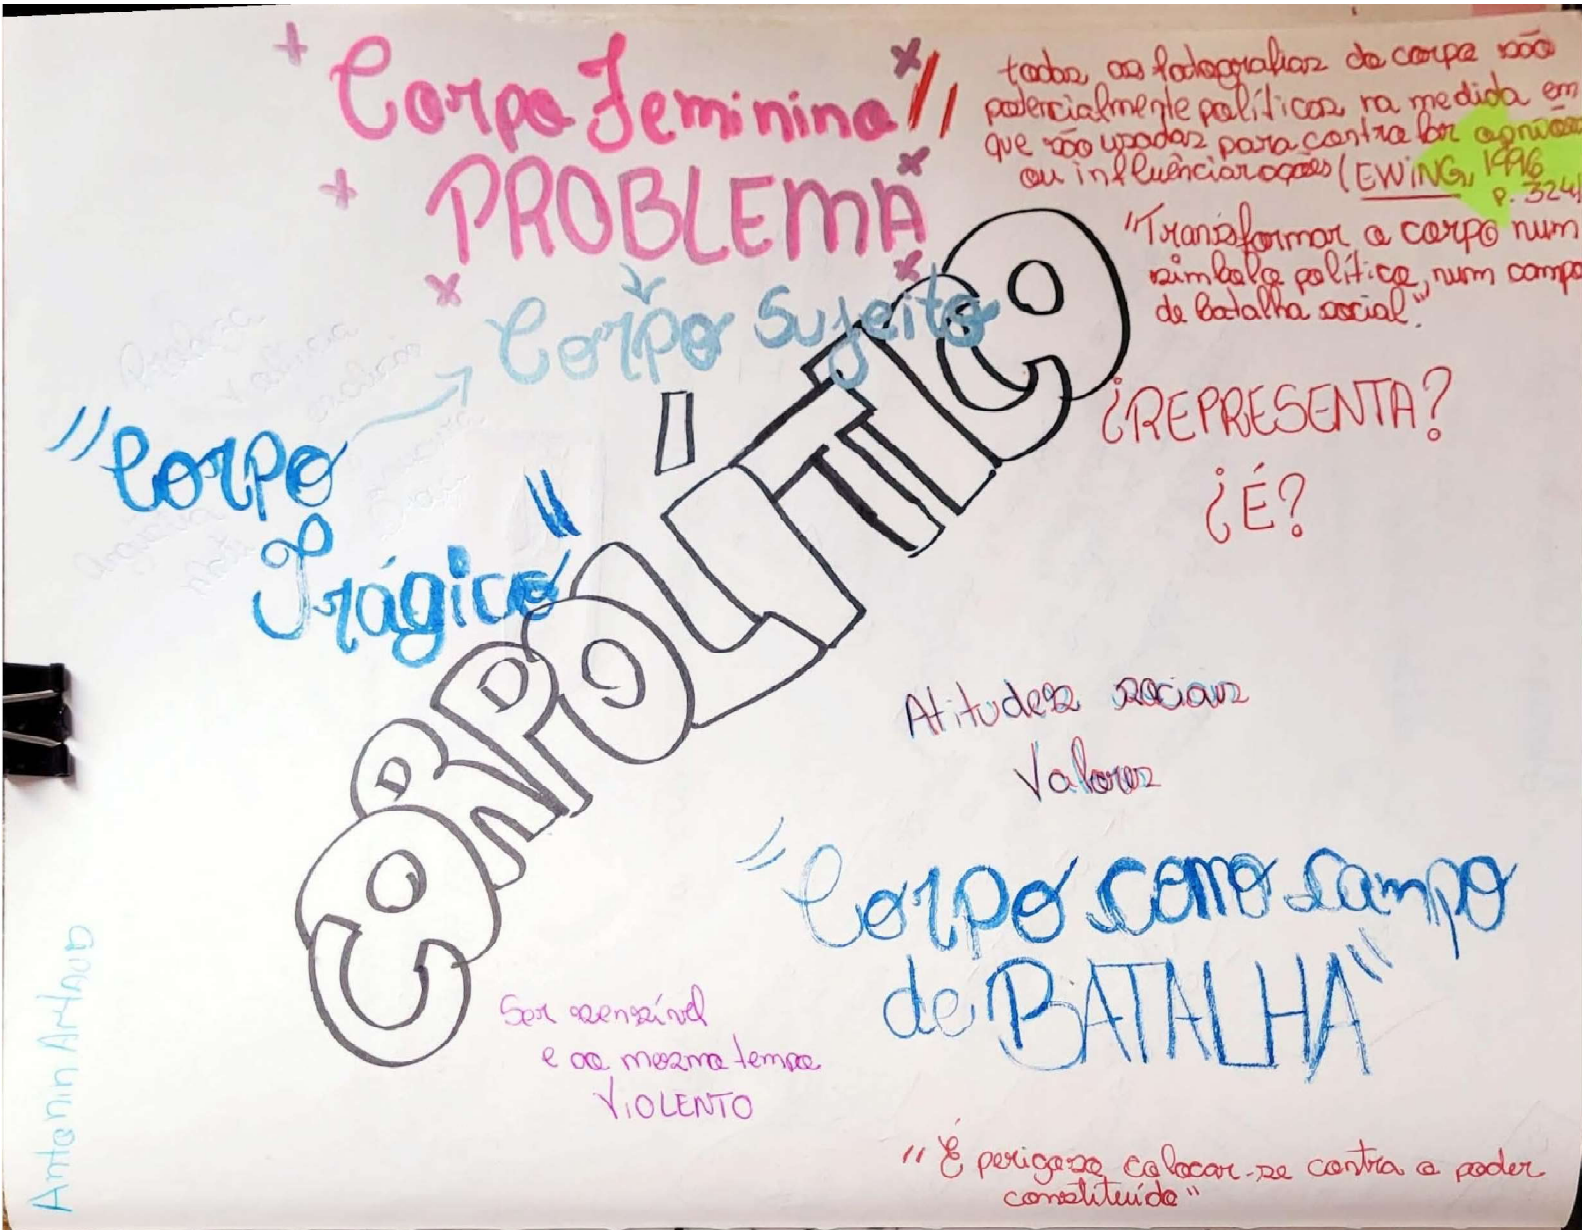 Corpo Feminino //
PROBLEMA
todas as fotografias do corpo são
potencialmente políticas, na medida em
que são usadas para controlar opniões
ou influênciar ações (EWING, 1996
p. 324)
"Transformar o corpo num
símbolo político, num campo
de batalha social".
Corpo Sujeito
"Corpo
Trágico"
CORPOLÍTICO
¿REPRESENTA?
¿É?
Atitudes sociais
Valores
"Corpo como campo
de BATALHA"
Ser sensível
e ao mesmo tempo
VIOLENTO
"É perigoso colocar-se contra o poder
constituído"
Antonin Artaud